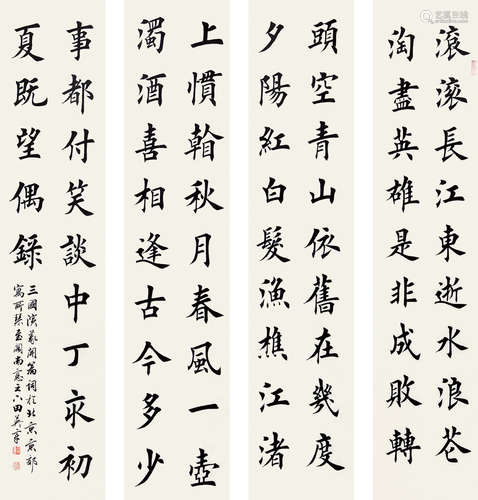 滾滾長江東逝水浪花
淘盡英雄是非成敗轉
頭空青山依舊在幾度
夕陽紅白髮漁樵江渚
上慣看秋月春風一壺
濁酒喜相逢古今多少
事都付笑談中丁亥初
夏既望偶録
三國演義開篇詞於北京京郊
寓所閣南窗之下田英章